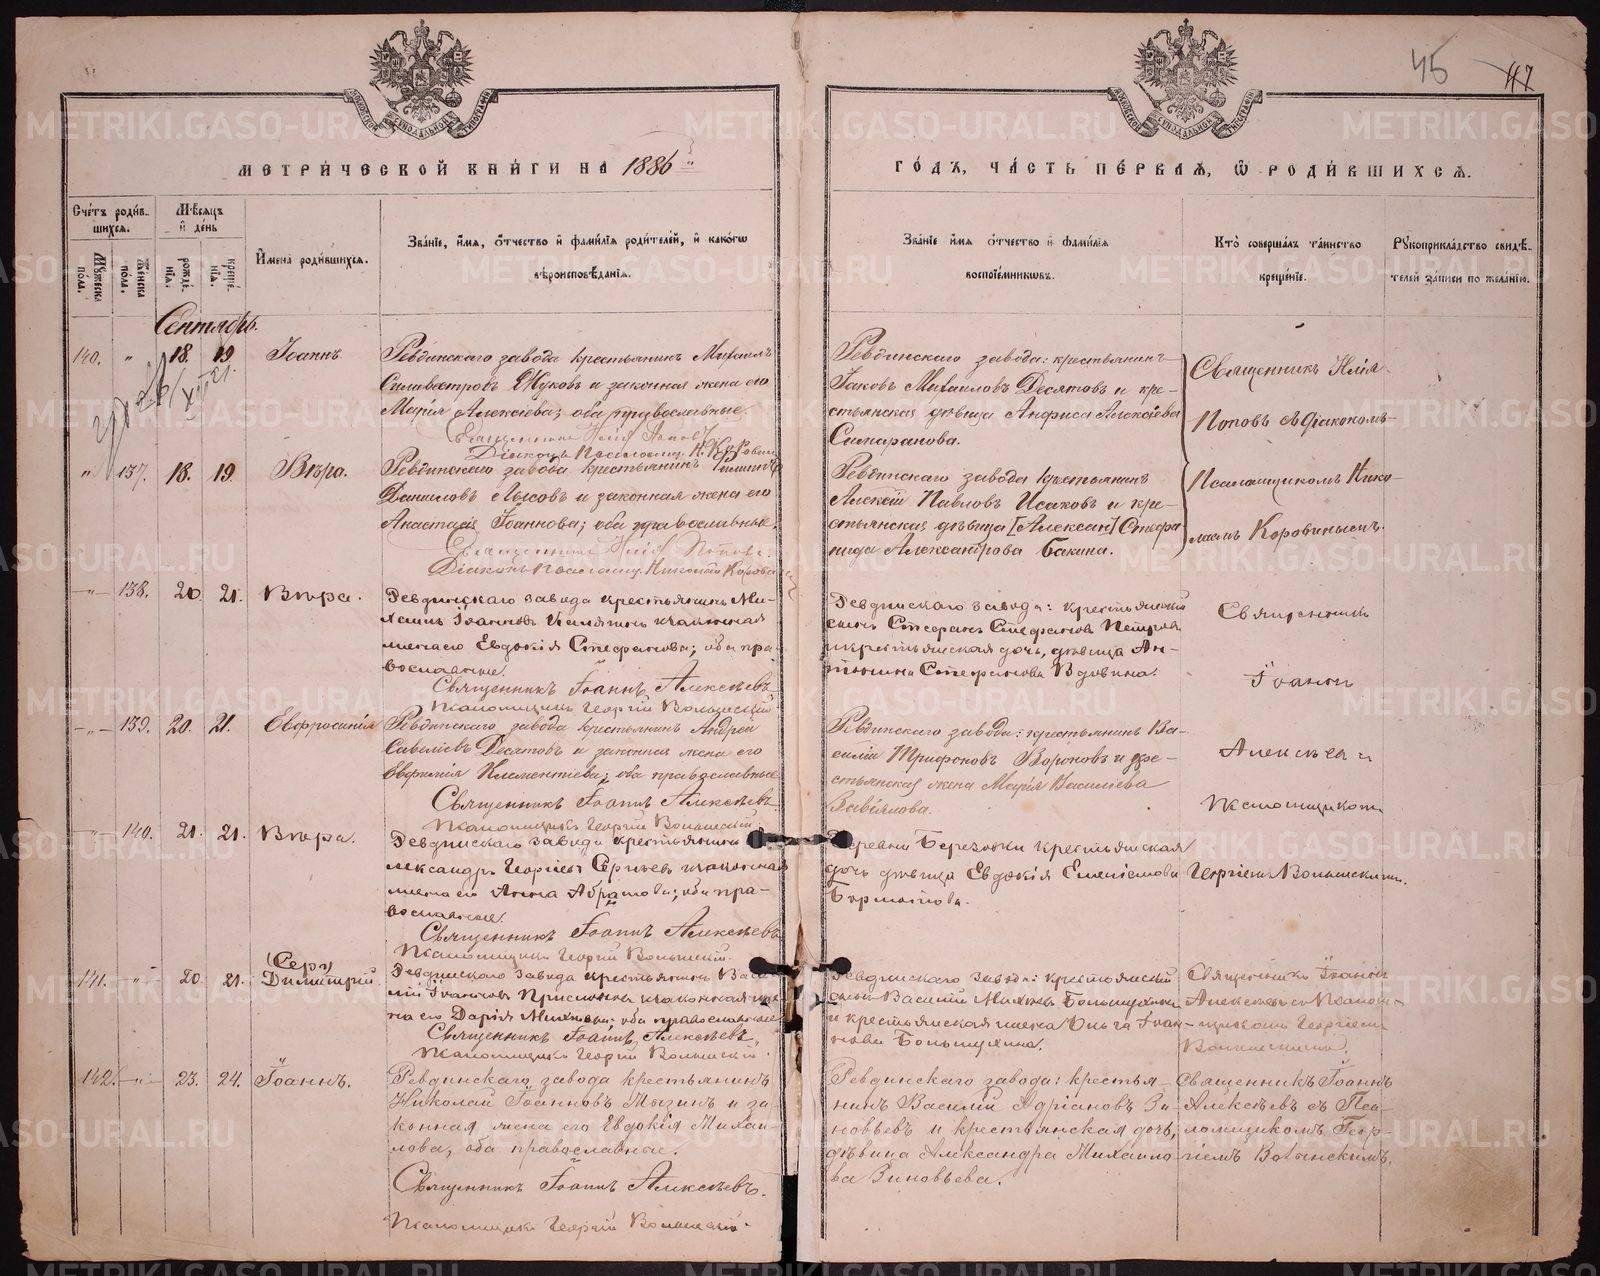 45
47
МЕТРИЧЕСКОЙ КНИГИ НА 1886
ГОДЪ, ЧАСТЬ ПЕРВАЯ, Ѡ РОДИВШИХСЯ.
Счетъ родив-
шихся.
Мужеска
пола.
Женска
пола.
Мѣсяцъ
и день
рожде-
нія.
креще-
нія.
Имена родившихся.
Званіе, имя, отчество и фамилія родителей, и какогѡ
вѣроисповѣданія.
Званіе имя отчество и фамилія
воспріемниковъ.
Кто совершалъ таинство
крещеніе.
Рукоприкладство свидѣ-
телей записи по желанію.
Сентябрь.
140. " 18. 19. Іоаннъ
Ревдинскаго завода крестьянинъ Михаилъ
Силивестровъ Жуковъ и законная жена его
Марія Алексіева; оба православные.
Священникъ Илія Поповъ
Діаконъ Псаломщ. Н. Коровинъ
Ревдинскаго завода: крестьянинъ
Іаковъ Михаиловъ Десятовъ и кре-
стьянская дѣвица Анфиса Алексіева
Священникъ Илія
Поповъ съ Діакономъ
" 137. 18. 19. Вѣра.
Ревдинскаго завода крестьянинъ Филиппъ
Даниловъ Лысовъ и законная жена его
Анастасія Іоаннова; оба православные.
Священникъ Илія Поповъ.
Діаконъ Псаломщ. Николай Коровинъ
Ревдинскаго завода крестьянинъ
Алексій Павловъ Исаковъ и кре-
стьянская дѣвица [Алексан] Стефа
нида Александрова Бакина.
Псаломщикомъ Нико-
лаемъ Коровинымъ.
-"- 138. 20. 21. Вѣра.
Ревдинскаго завода крестьянинъ Ми-
хаилъ Іоанновъ и законная
жена его Евдокія Стефанова; оба пра-
вославные.
Священникъ Іоаннъ Алексѣевъ
Псаломщикъ Георгій Волынскій
Ревдинскаго завода: крестьянскій
сынъ Стефанъ Стефановъ Петровъ
и крестьянская дочь, дѣвица Ан-
тонина Стефанова Вдовина.
Священникъ
Іоаннъ
-"- 139. 20. 21. Евфросинія
Ревдинскаго завода крестьянинъ Андрей
Савеліевъ Десятовъ и законная жена его
Евфимія Климентіева; оба православные
Священникъ Іоаннъ Алексѣевъ
Псаломщикъ Георгій Волынскій.
Ревдинскаго завода: крестьянинъ Ва-
силій Трифоновъ Вороновъ и кре-
стьянская жена Марія Василіева
Завьялова.
Алексѣевъ
Псаломщикомъ
-"- 140. 21. 21. Вѣра.
Ревдинскаго завода крестьянинъ
лександръ Георгіевъ Сергѣевъ и законная
жена его Анна Абрамова; оба пра-
вославные.
Священникъ Іоаннъ Алексѣевъ
Псаломщикъ Георгій Волынскій.
Деревни Березовки крестьянская
дочь дѣвица Евдокія
Георгіемъ Волынскимъ.
141. -"- 20. 21. (Серг) Димитрій.
Ревдинскаго завода крестьянинъ Васи-
лій Іоанновъ и законная же-
на его Дарія; оба православные
Священникъ Іоаннъ Алексѣевъ
Псаломщикъ Георгій Волынскій.
Ревдинскаго завода: крестьянскій
сынъ Василій
и крестьянская жена Ольга Іоан-
нова Большухина.
Священникъ Іоаннъ
Алексѣевъ съ Псалом-
щикомъ Георгіемъ
Волынскимъ.
142. -"- 23. 24. Іоаннъ.
Ревдинскаго завода крестьянинъ
Николай Іоанновъ Мызинъ и за-
конная жена его Евдокія Михаи-
лова, оба православные.
Священникъ Іоаннъ Алексѣевъ.
Псаломщикъ Георгій Волынскій.
Ревдинскаго завода: крестья-
нинъ Василій Адріановъ Зи-
новьевъ и крестьянская дочь,
дѣвица Александра Михаило-
ва Зиновьева.
Священникъ Іоаннъ
Алексѣевъ съ Пса-
ломщикомъ Геор-
гіемъ Волынскимъ.
METRIKI.GASO-URAL.RU